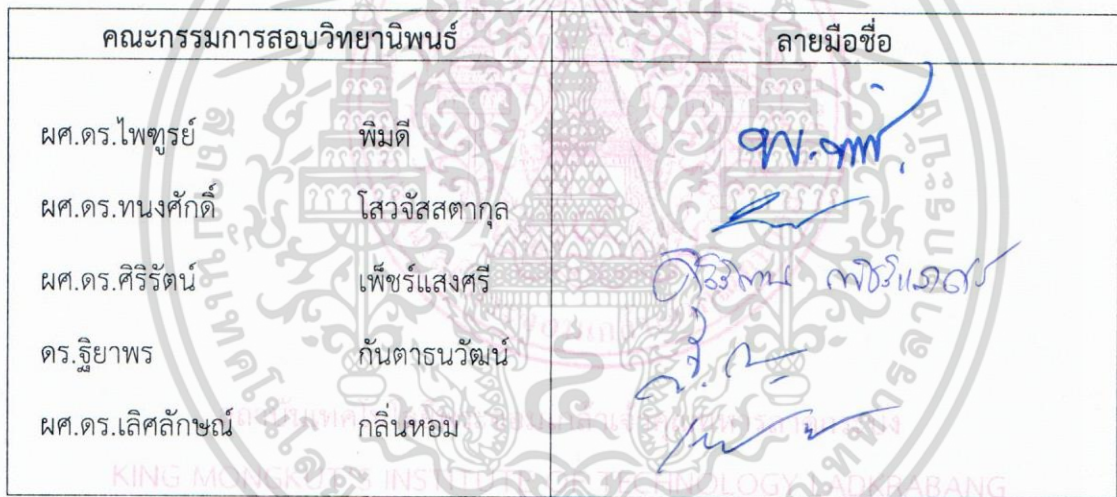 คณะกรรมการสอบวิทยานิพนธ์ ลายมือชื่อ
ผศ.ดร.ไพฑูรย์ พิมดี
ผศ.ดร.ทนงศักดิ์ โสวจัสสตากุล
ผศ.ดร.ศิริรัตน์ เพ็ชร์แสงศรี
ดร.ฐิยาพร กันตาธนวัฒน์
ผศ.ดร.เลิศลักษณ์ กลิ่นหอม
KING MONGKUT'S INSTITUTE OF TECHNOLOGY LADKRABANG